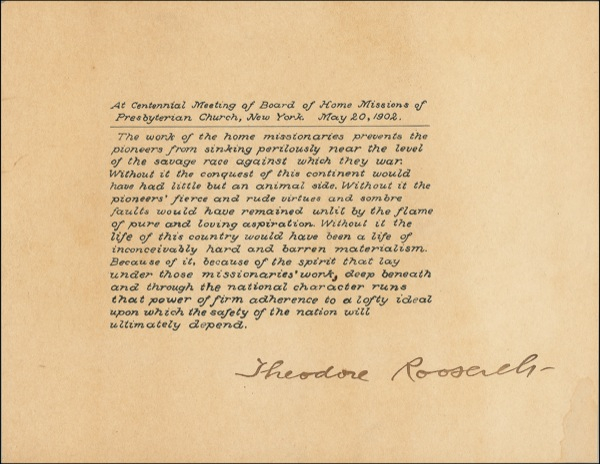 At Centennial Meeting of Board of Home Missions of
Presbyterian Church, New York. May 20, 1902.
The work of the home missionaries prevents the
pioneers from sinking perilously near the level
of the savage race against which they war.
Without it the conquest of this continent would
have had little but an animal side. Without it the
pioneers' fierce and rude virtues and sombre
faults would have remained unlit by the flame
of pure and loving aspiration. Without it the
life of this country would have been a life of
inconceivably hard and barren materialism.
Because of it, because of the spirit that lay
under those missionaries' work, deep beneath
and through the national character runs
that power of firm adherence to a lofty ideal
upon which the safety of the nation will
ultimately depend.
Theodore Roosevelt